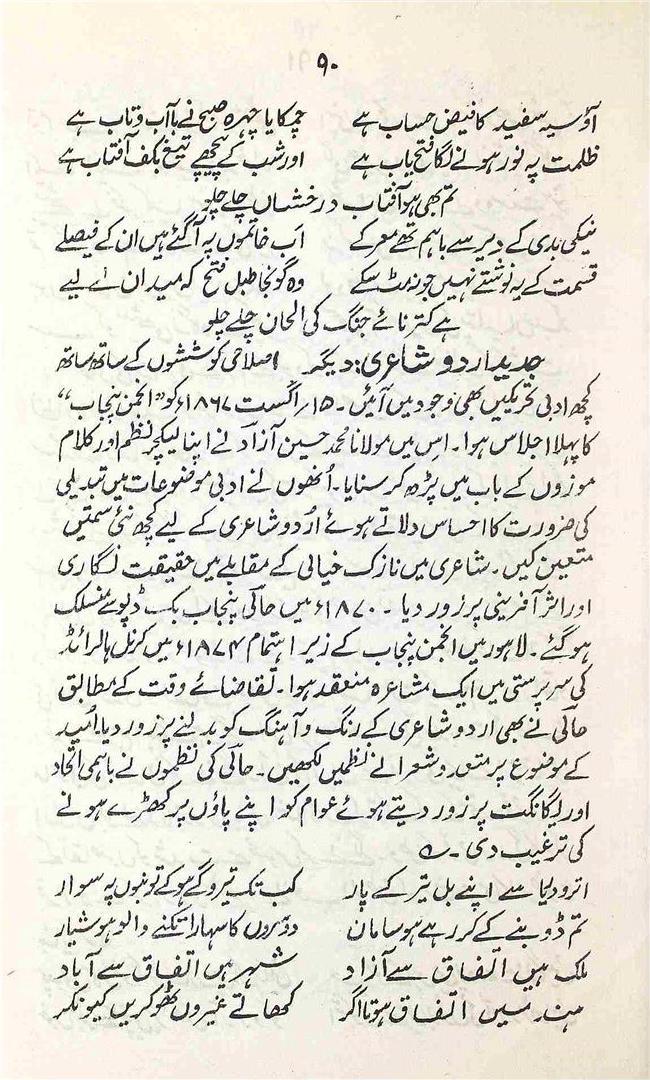 ۹۰
آؤ سیہ سفید کا فیض حساب ہے چمکایا چہرہ صبح نے با آب و تاب ہے
ظلمت پہ نور ہونے لگا فتح یاب ہے اور شب کے پیچھے تیغ بکف آفتاب ہے
تم بھی ہو آفتاب درخشاں چلے چلو
نیکی بدی کے دیر سے باہم تھے معرکے اب خاتموں پہ آ گئے ہیں ان کے فیصلے
قسمت کے یہ نوشتے نہیں جو نہ مٹ سکے وہ گونجا طبل فتح کہ میدان لے لیے
ہے کرنائے جنگ کی الحان چلے چلو
جدید اردو شاعری: دیگر اصلاحی کوششوں کے ساتھ ساتھ
کچھ ادبی تحریکیں بھی وجود میں آئیں۔ ۱۵/ اگست ۱۸۶۷ء کو "انجمن پنجاب"
کا پہلا اجلاس ہوا۔ اس میں مولانا محمد حسین آزاد نے اپنا لیکچر نظم اور کلام
موزوں کے باب میں پڑھ کر سنایا۔ اُنھوں نے ادبی موضوعات میں تبدیلی
کی ضرورت کا احساس دلاتے ہوئے اردو شاعری کے لیے کچھ نئی سمتیں
متعین کیں۔ شاعری میں نازک خیالی کے مقابلے میں حقیقت نگاری
اور اثر آفرینی پر زور دیا۔ ۱۸۷۰ء میں حالی پنجاب بک ڈپو سے منسلک
ہو گئے۔ لاہور میں انجمن پنجاب کے زیر اہتمام ۱۸۷۴ء میں کرنل ہالرائڈ
کی سرپرستی میں ایک مشاعرہ منعقد ہوا۔ تقاضائے وقت کے مطابق
حالی نے بھی اردو شاعری کے رنگ و آہنگ کو بدلنے پر زور دیا۔ امید
کے موضوع پر متعدد شعرا نے نظمیں لکھیں۔ حالی کی نظموں نے باہمی اتحاد
اور یگانگت پر زور دیتے ہوئے عوام کو اپنے پاؤں پر کھڑے ہونے
کی ترغیب دی۔ ؎
اترو دریا سے اپنے بل تیر کے پار کب تک تیرو گے ہو کے تونبوں پہ سوار
تم ڈوبنے کے کر رہے ہو سامان دوسروں کا سہارا تکنے والو ہوشیار
ملک ہیں اتفاق سے آزاد شہر ہیں اتفاق سے آباد
ہند میں اتفاق ہوتا اگر کھاتے غیروں کی ٹھوکریں کیونکر